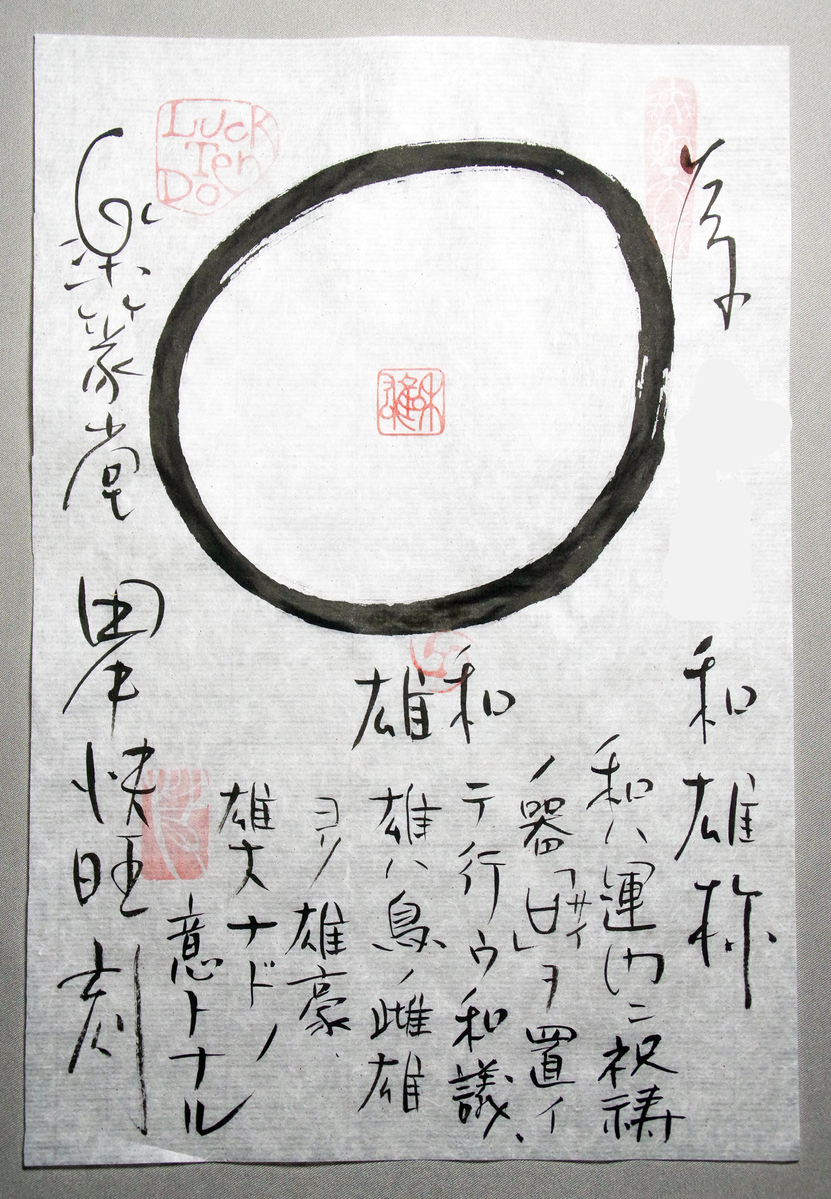 和雄
和ハ運門ニ祝祷
ノ器「廿」ヲ置イ
サイ
テ行ウ和議、
雄ハ鳥ノ雌雄
ヨリ雄豪、
雄大ナドノ
意トナル
和雄
和雄
Luck
Ten
Do
楽篆堂 田中快旺刻